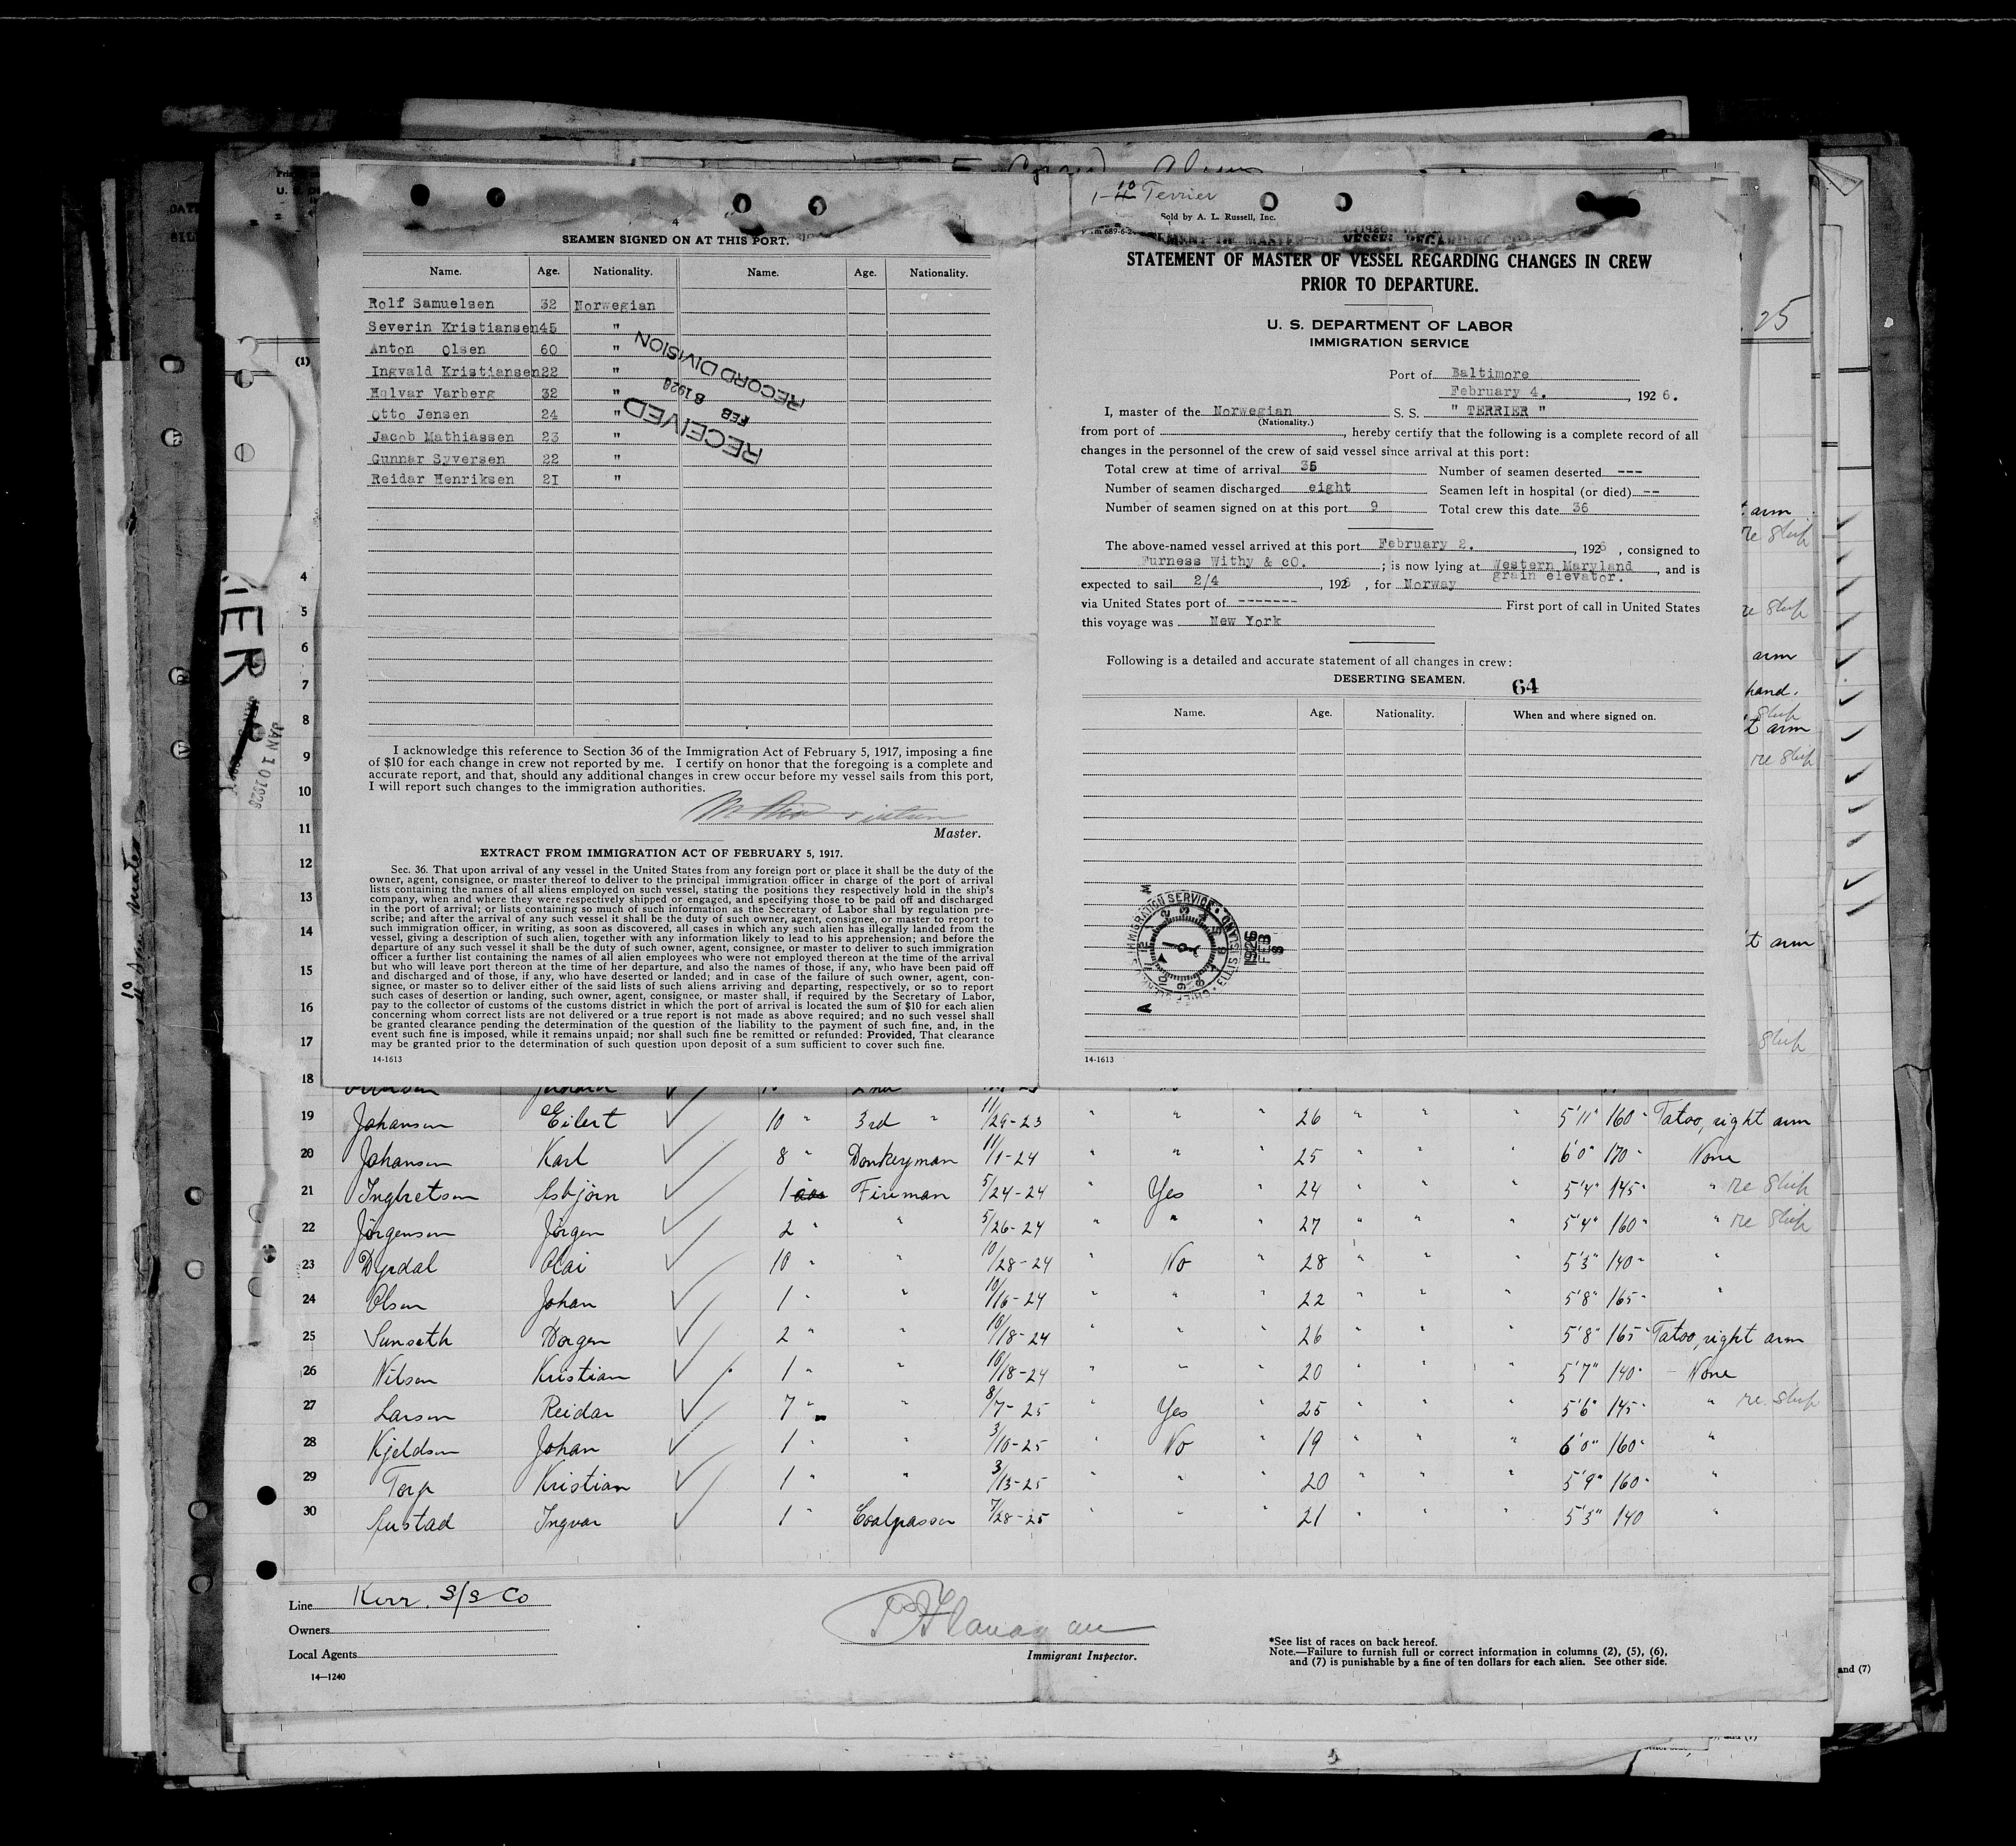 1-10 Terrier
Sold by A. L. Russell, Inc.
4
SEAMEN SIGNED ON AT THIS PORT.
Name. Age. Nationality. Name. Age. Nationality.
Rolf Samuelsen 32 Norwegian
Severin Kristiansen 45 "
Anton Olsen 60 "
Ingvald Kristiansen 22 "
Halvar Varberg 32 "
Otto Jensen 24 "
Jacob Mathiassen 23 "
Gunnar Syversen 22 "
Reidar Henriksen 21 "
RECEIVED
FEB 8 1926
RECORD DIVISION
I acknowledge this reference to Section 36 of the Immigration Act of February 5, 1917, imposing a fine
of $10 for each change in crew not reported by me. I certify on honor that the foregoing is a complete and
accurate report, and that, should any additional changes in crew occur before my vessel sails from this port,
I will report such changes to the immigration authorities.
Master.
EXTRACT FROM IMMIGRATION ACT OF FEBRUARY 5, 1917.
Sec. 36. That upon arrival of any vessel in the United States from any foreign port or place it shall be the duty of the
owner, agent, consignee, or master thereof to deliver to the principal immigration officer in charge of the port of arrival
lists containing the names of all aliens employed on such vessel, stating the positions they respectively hold in the ship's
company, when and where they were respectively shipped or engaged, and specifying those to be paid off and discharged
in the port of arrival; or lists containing so much of such information as the Secretary of Labor shall by regulation pre-
scribe; and after the arrival of any such vessel it shall be the duty of such owner, agent, consignee, or master to report to
such immigration officer, in writing, as soon as discovered, all cases in which any such alien has illegally landed from the
vessel, giving a description of such alien, together with any information likely to lead to his apprehension; and before the
departure of any such vessel it shall be the duty of such owner, agent, consignee, or master to deliver to such immigration
officer a further list containing the names of all alien employees who were not employed thereon at the time of the arrival
but who will leave port thereon at the time of her departure, and also the names of those, if any, who have been paid off
and discharged and of those, if any, who have deserted or landed; and in case of the failure of such owner, agent, con-
signee, or master so to deliver either of the said lists of such aliens arriving and departing, respectively, or so to report
such cases of desertion or landing, such owner, agent, consignee, or master shall, if required by the Secretary of Labor,
pay to the collector of customs of the customs district in which the port of arrival is located the sum of $10 for each alien
concerning whom correct lists are not delivered or a true report is not made as above required; and no such vessel shall
be granted clearance pending the determination of the question of the liability to the payment of such fine, and, in the
event such fine is imposed, while it remains unpaid; nor shall such fine be remitted or refunded: Provided, That clearance
may be granted prior to the determination of such question upon deposit of a sum sufficient to cover such fine.
14-1613
STATEMENT OF MASTER OF VESSEL REGARDING CHANGES IN CREW
PRIOR TO DEPARTURE.
U. S. DEPARTMENT OF LABOR
IMMIGRATION SERVICE
Port of Baltimore
February 4. , 1926.
I, master of the Norwegian S. S. " TERRIER "
(Nationality.)
from port of , hereby certify that the following is a complete record of all
changes in the personnel of the crew of said vessel since arrival at this port:
Total crew at time of arrival 35 Number of seamen deserted ---
Number of seamen discharged eight Seamen left in hospital (or died) --
Number of seamen signed on at this port 9 Total crew this date 36
The above-named vessel arrived at this port February 2. , 1926 , consigned to
Furness Withy & cO. ; is now lying at Western Maryland grain elevator. , and is
expected to sail 2/4 , 1926 , for Norway
via United States port of ------- First port of call in United States
this voyage was New York
Following is a detailed and accurate statement of all changes in crew:
DESERTING SEAMEN. 64
Name. Age. Nationality. When and where signed on.
IMMIGRATION SERVICE ELLIS ISLAND
1926 FEB 8
14-1613
JAN 10 1926
(1)
4
5
6
7
8
9
10
11
12
13
14
15
16
17
18
19 Johansen Eilert 10 " 3rd " 11/29-23 " " " 26 " " " 5'11" 160 " Tatoo, right arm
20 Johansen Karl 8 " Donkeyman 11/1-24 " " " 25 " " " 6'0" 170 " None
21 Ingbretsen Asbjörn 1 Fireman 5/24-24 " Yes " 24 " " " 5'4" 145 " " re ship
22 Jörgensen Jörgen 2 " " 5/26-24 " " " 27 " " " 5'4" 160 " " re ship
23 Dyrdal Olai 10 " " 10/28-24 " No " 28 " " " 5'3" 140 " "
24 Olsen Johan 1 " " 10/16-24 " " " 22 " " " 5'8" 165 " "
25 Sunseth Dorgen 2 " " 10/18-24 " " " 26 " " " 5'8" 165 " Tatoo, right arm
26 Nilsen Kristian 1 " " 10/18-24 " " " 20 " " " 5'7" 140 " None
27 Larsen Reidar 7 " " 8/7-25 " Yes " 25 " " " 5'6" 145 " " re. ship
28 Kjeldsen Johan 1 " " 3/10-25 " No " 19 " " " 6'0" 160 " "
29 Torp Kristian 1 " " 3/13-25 " " " 20 " " " 5'9" 160 " "
30 Austad Ingvar 1 " Coalpasser 7/28-25 " " 21 " " " 5'3" 140 "
Line Kerr. S/S Co
Owners
Local Agents
14—1240
P Flanagan
Immigrant Inspector.
*See list of races on back hereof.
Note.—Failure to furnish full or correct information in columns (2), (5), (6),
and (7) is punishable by a fine of ten dollars for each alien. See other side.
and (7)